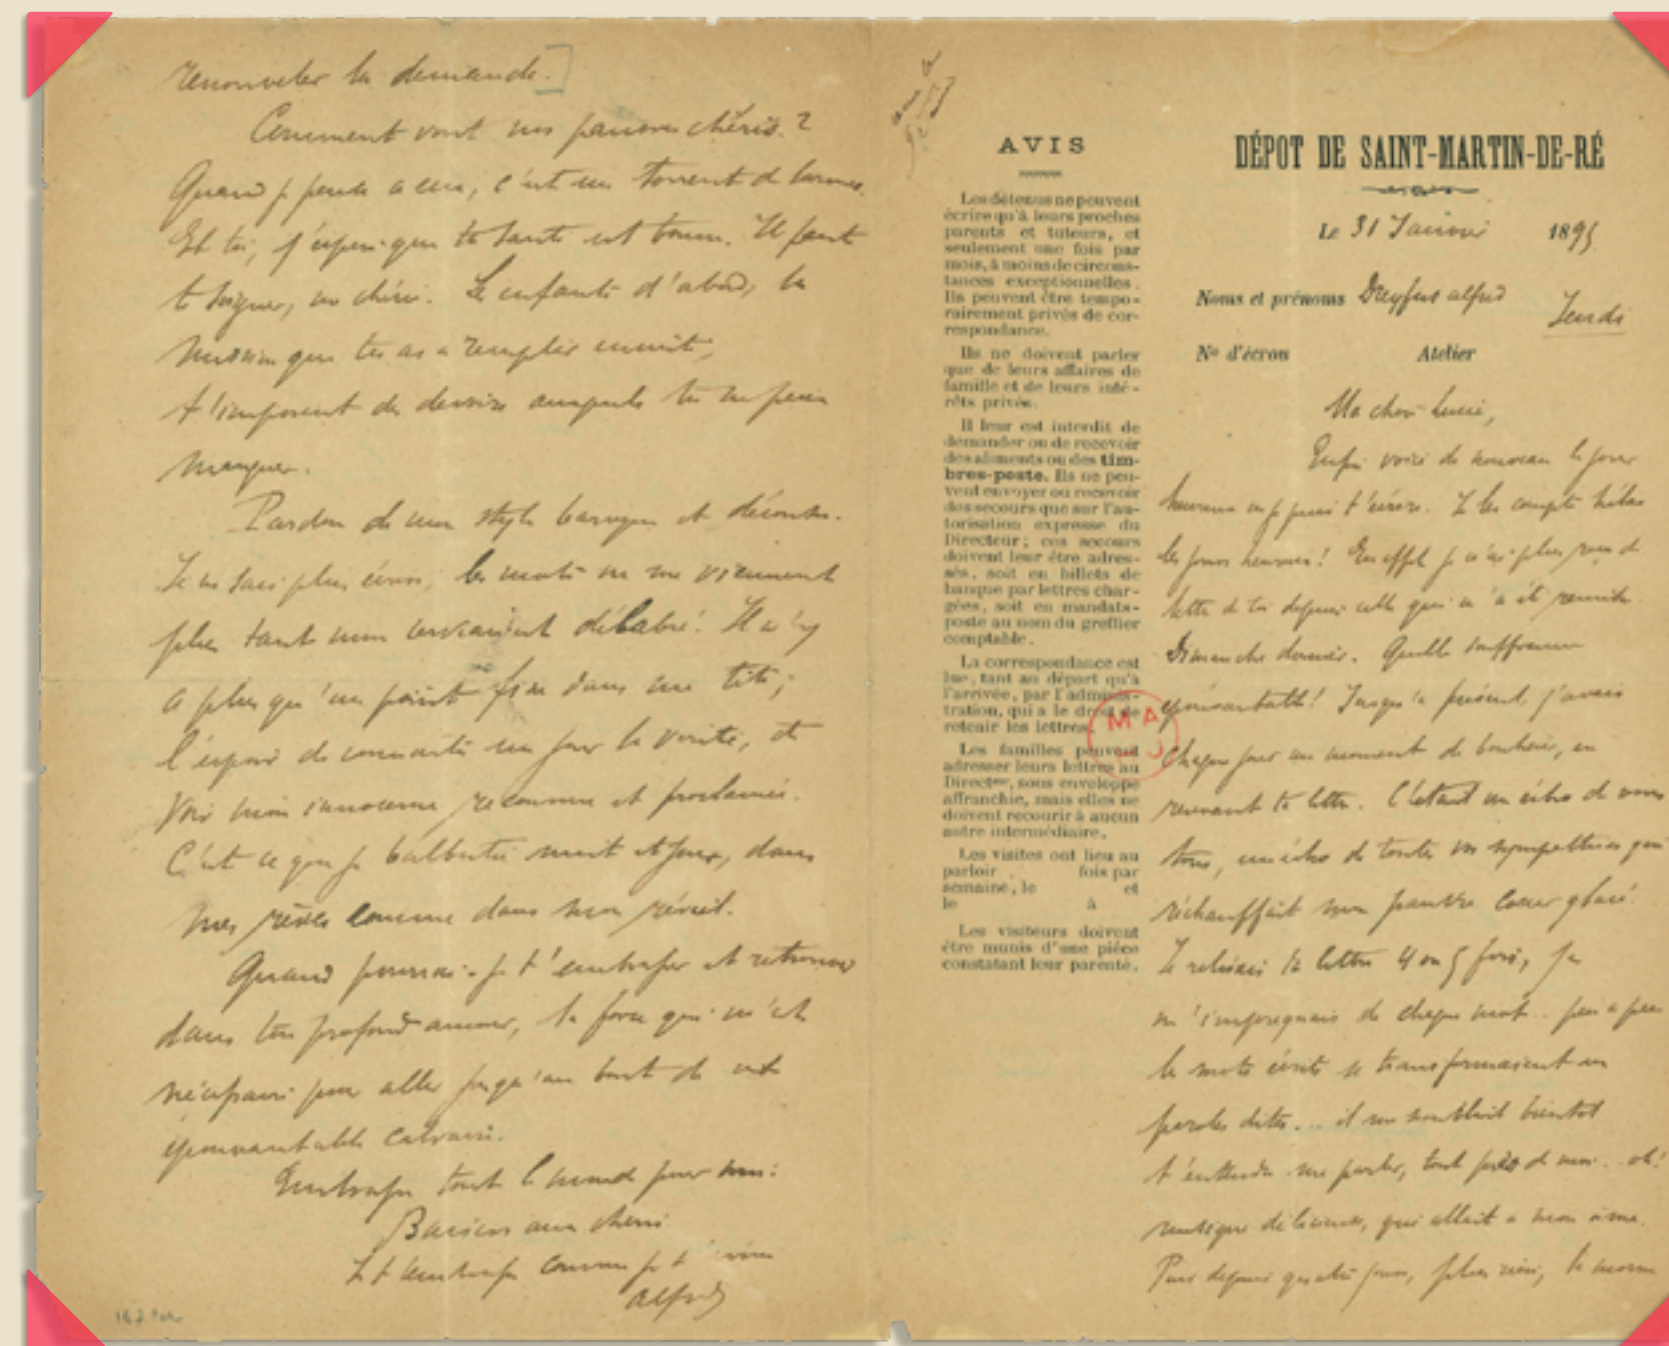 renouveler la demande.
Comment vont nos pauvres chéris ?
Quand je pense à eux, c'est un torrent de larmes.
Et toi, j'espère que ta santé est bonne. Il faut
te soigner, ma chérie. Les enfants d'abord, la
mission que tu as à remplir ensuite,
t'imposent des devoirs auxquels tu ne peux
manquer.
Pardon de mon style baroque et décousu.
Je ne sais plus écrire, les mots ne me viennent
plus tant mon cerveau est délabré. Il n'y
a plus qu'un point fixe dans ma tête ;
l'espoir de connaître un jour la vérité, de
voir mon innocence reconnue et proclamée.
C'est ce que je balbutie nuit et jour, dans
mes rêves comme dans mon réveil.
Quand pourrai-je t'embrasser et retrouver
dans ton profond amour, la force qui m'est
nécessaire pour aller jusqu'au bout de cet
épouvantable calvaire.
Embrasse tout le monde pour moi.
Baisers aux chéris
Je t'embrasse comme je t'aime
Alfred
AVIS
Les détenus ne peuvent
écrire qu'à leurs proches
parents et tuteurs, et
seulement une fois par
mois, à moins de circons-
tances exceptionnelles.
Ils peuvent être tempo-
rairement privés de cor-
respondance.
Ils ne doivent parler
que de leurs affaires de
famille et de leurs inté-
rêts privés.
Il leur est interdit de
demander ou de recevoir
des aliments ou des tim-
bres-poste. Ils ne peu-
vent envoyer ou recevoir
des secours que sur l'au-
torisation expresse du
Directeur ; ces secours
doivent leur être adres-
sés, soit en billets de
banque par lettres char-
gées, soit en mandats-
poste au nom du greffier
comptable.
La correspondance est
lue, tant au départ qu'à
l'arrivée, par l'adminis-
tration, qui a le droit de
retenir les lettres.
Les familles peuvent
adresser leurs lettres au
Directeur, sous enveloppe
affranchie, mais elles ne
doivent recourir à aucun
autre intermédiaire.
Les visites ont lieu au
parloir fois par
semaine, le et
le à
Les visiteurs doivent
être munis d'une pièce
constatant leur parenté.
MA
DÉPOT DE SAINT-MARTIN-DE-RÉ
Le 31 Janvier 1895
Noms et prénoms Dreyfus Alfred
Jeudi
N° d'écrou Atelier
Ma chère Lucie,
Enfin voici de nouveau le jour
heureux où je puis t'écrire. Je les compte hélas
les jours heureux ! En effet je n'ai plus reçu de
lettre de toi depuis celle qui m'a été remise
Dimanche dernier. Quelle souffrance
épouvantable ! Jusqu'à présent, j'avais
chaque jour un moment de bonheur, en
recevant ta lettre. C'était un écho de vous
tous, un écho de toutes vos sympathies qui
réchauffait mon pauvre coeur glacé.
Je relisais ta lettre 4 ou 5 fois, je
m'imprégnais de chaque mot.. peu à peu
les mots écrits se transformaient en
paroles dites... il me semblait bientôt
t'entendre me parler, tout près de moi.. oh!
musique délicieuse, qui allait à mon âme.
Puis depuis quatre jours, plus rien, la morne